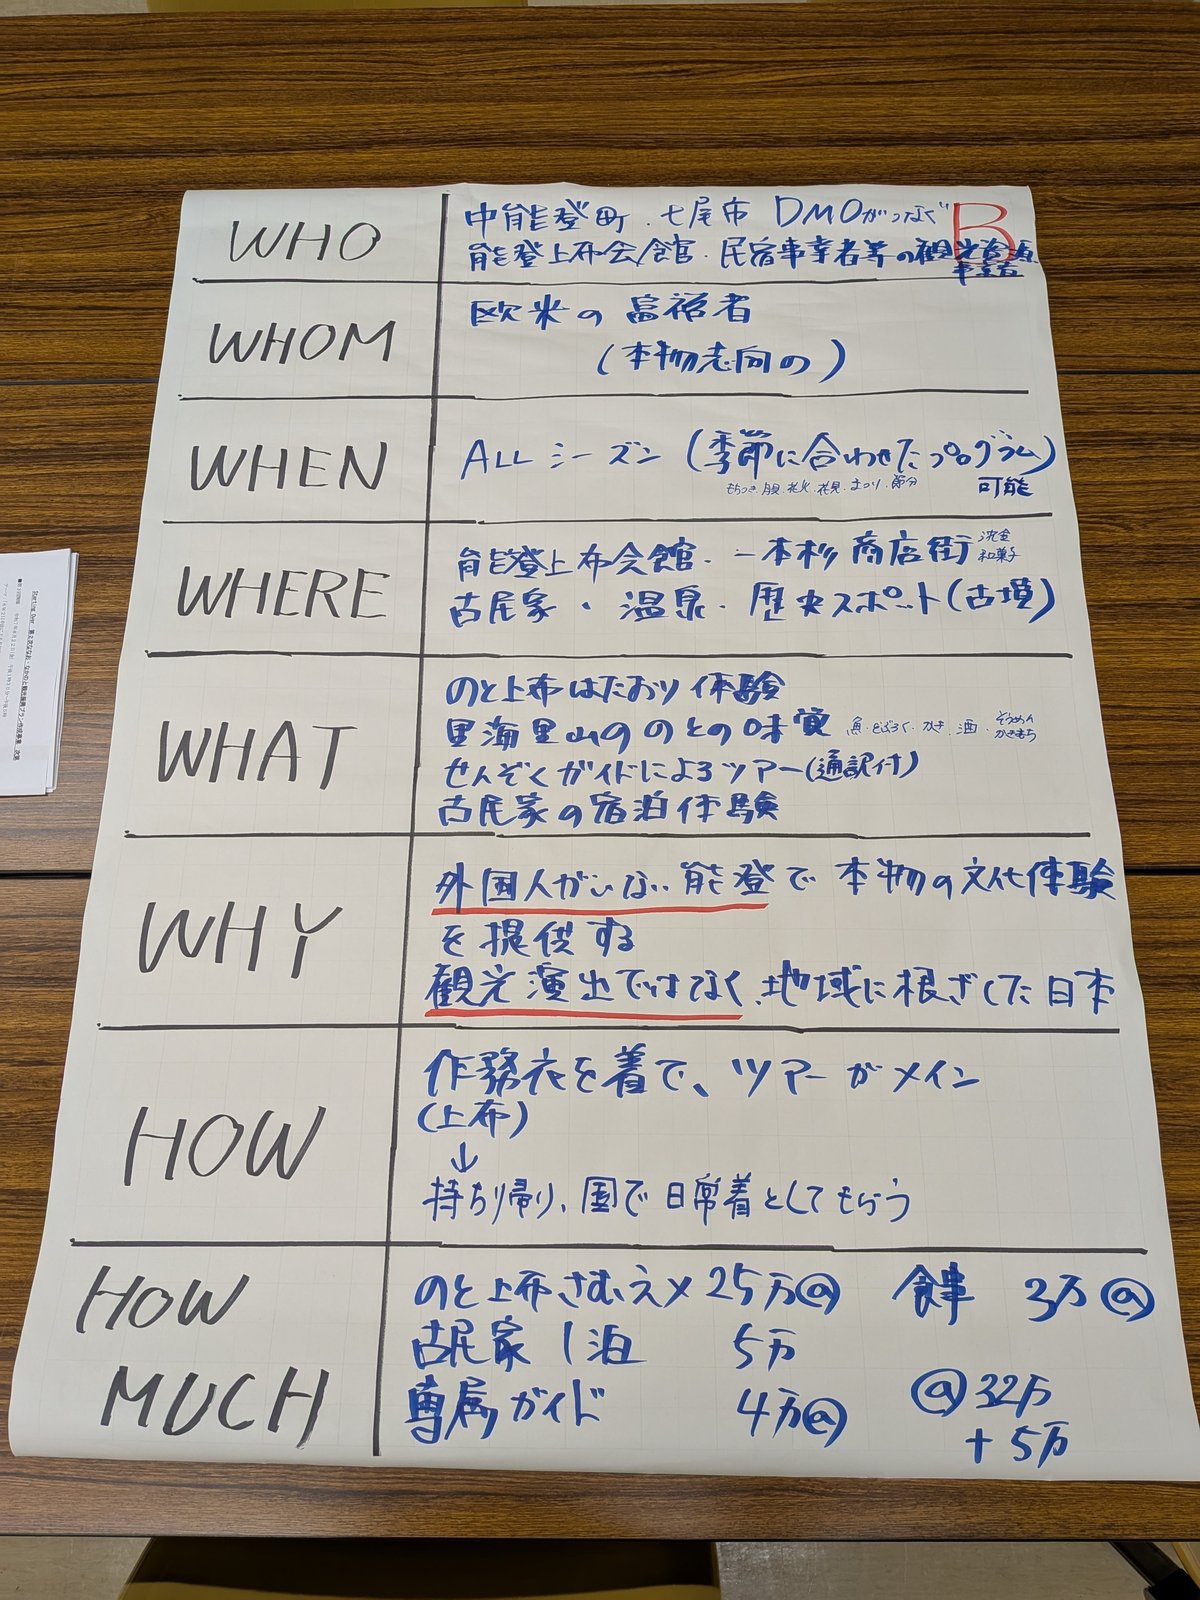 B
WHO
中能登町.七尾市 DMOがつなぐ
能登上布会館.民宿事業者等の観光資源
事業者
WHOM
欧米の富裕者
(本物志向の)
WHEN
ALLシーズン(季節に合わせたプログラム)
もちつき.月見.花火.花見.まつり.節分
可能
WHERE
能登上布会館.一本杉商店街
沈金
和菓子
古民家・温泉・歴史スポット(古墳)
WHAT
のと上布はたおり体験
里海里山ののとの味覚
魚.どぶろく.かき.酒.そうめん
かきもち
せんぞくガイドによるツアー(通訳付)
古民家の宿泊体験
WHY
外国人がいない能登で本物の文化体験
を提供する
観光演出ではなく.地域に根ざした日本
HOW
作務衣を着て、ツアーがメイン
(上布)
↓
持ち帰り、国で日常着としてもらう
HOW
MUCH
のと上布さむえメ 25万@ 食事 3万@
古民家1泊 5万
専属ガイド 4万@
@32万
+5万
Starting Over 第2次ななお・なかのと観光振興プラン作成事業 次第